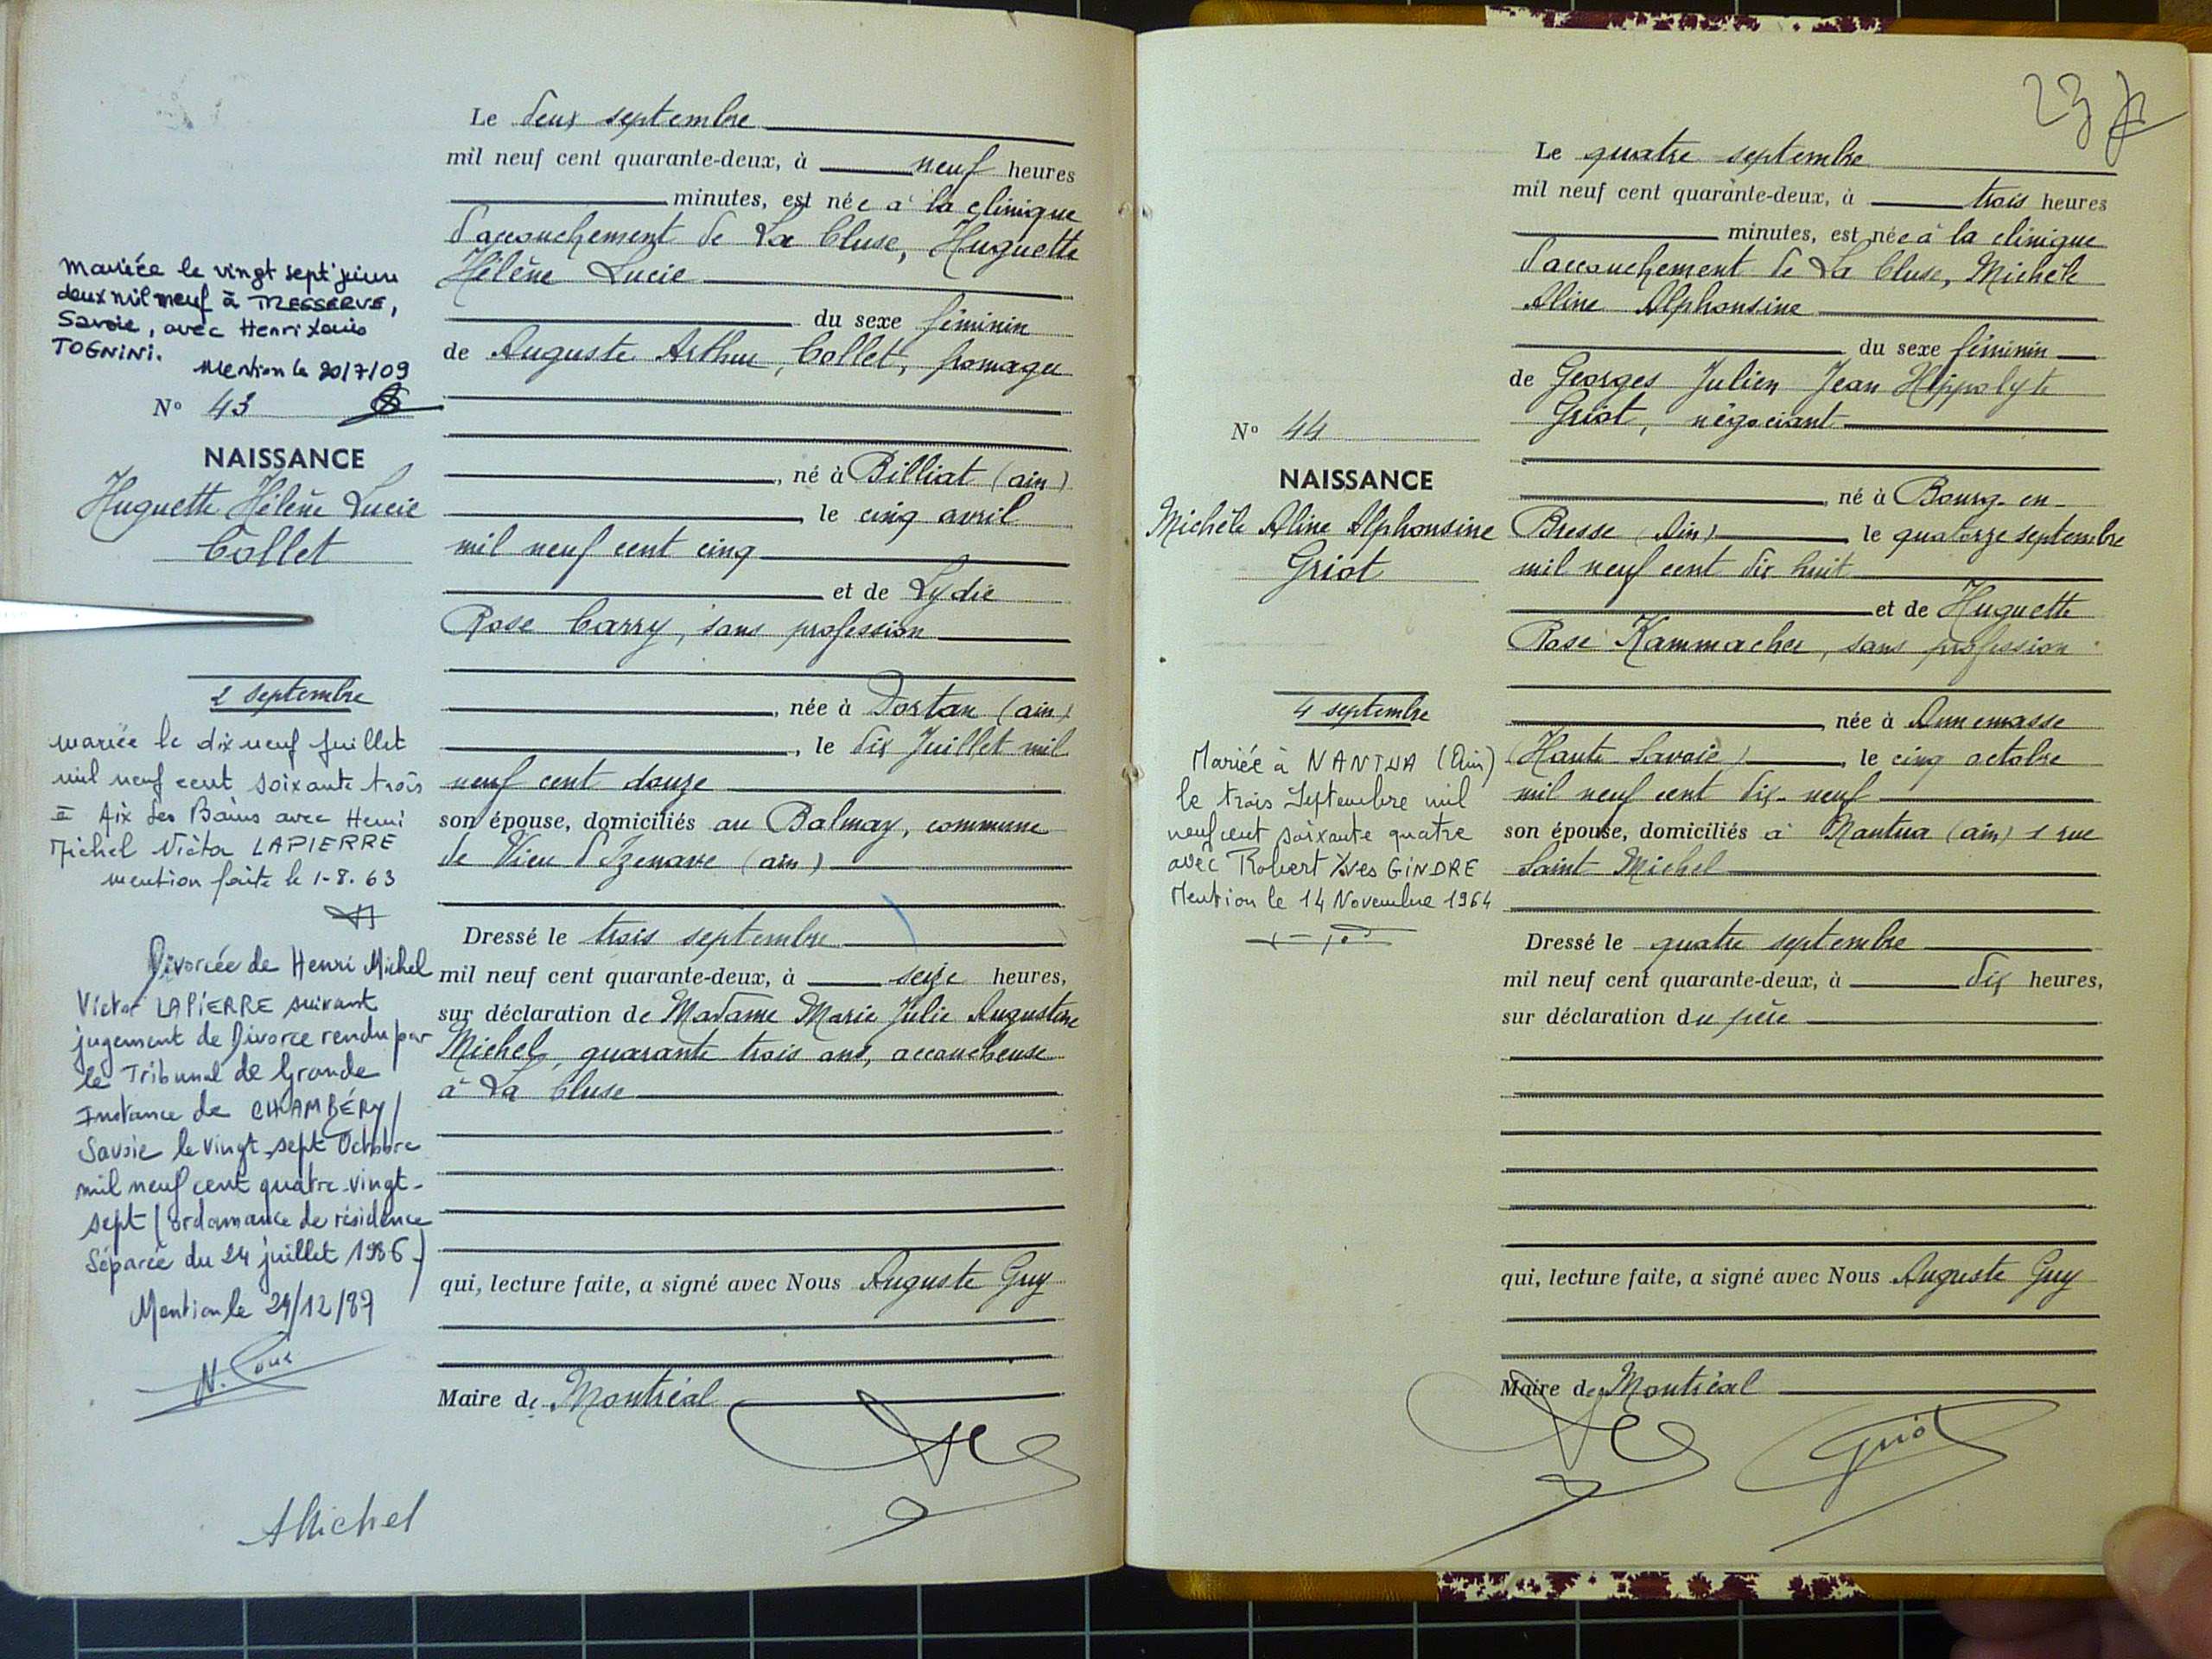 Mariée le vingt sept juin
deux mil neuf à TRESSERVE,
Savoie, avec Henri Louis
TOGNINI.
Mention le 20/7/09
N° 43
NAISSANCE
Huguette Hélène Lucie
Collet
2 septembre
mariée le dix neuf juillet
mil neuf cent soixante trois
à Aix les Bains avec Henri
Michel Victor LAPIERRE
mention faite le 1-8. 63
Divorcée de Henri Michel
Victor LAPIERRE suivant
jugement de Divorce rendu par
le Tribunal de Grande
Instance de CHAMBÉRY/
Savoie le vingt-sept Octobre
mil neuf cent quatre-vingt-
sept (ordonnance de résidence
Séparée du 24 juillet 1986.)
Mention le 24/12/87
Le deux septembre
mil neuf cent quarante-deux, à neuf heures
minutes, est née à la clinique
d'accouchement de La Cluse, Huguette
Hélène Lucie
du sexe féminin
de Auguste Arthur, Collet, fromager
, né à Billiat (ain)
, le cinq avril
mil neuf cent cinq
et de Lydie
Rose Carry, sans profession
, née à Dortan (ain)
, le dix Juillet mil
neuf cent douze
son épouse, domiciliés au Balmay, commune
de Vieu d'Izenave (ain)
Dressé le trois septembre
mil neuf cent quarante-deux, à seize heures,
sur déclaration de Madame Marie Julie Augustine
Michel, quarante trois ans, accoucheuse
à La Cluse
qui, lecture faite, a signé avec Nous Auguste Guy
Maire de Montréal
AMichel
23
N° 44
NAISSANCE
Michèle Aline Alphonsine
Griot
4 septembre
Mariée à NANTUA (Ain)
le trois Septembre mil
neuf cent soixante quatre
avec Robert Yves GINDRE
Mention le 14 Novembre 1964
Le quatre septembre
mil neuf cent quarante-deux, à trois heures
minutes, est née à la clinique
d'accouchement de La Cluse, Michèle
Aline Alphonsine
du sexe féminin
de Georges Julien Jean Hippolyte
Griot, négociant
, né à Bourg-en-
Bresse (Ain), le quatorze septembre
mil neuf cent dix huit
et de Huguette
Rose Kammacher, sans profession
, née à Annemasse
(Haute Savoie), le cinq octobre
mil neuf cent dix-neuf
son épouse, domiciliés à Nantua (ain) 1 rue
Saint Michel
Dressé le quatre septembre
mil neuf cent quarante-deux, à dix heures,
sur déclaration du père
qui, lecture faite, a signé avec Nous Auguste Guy
Maire de Montréal
Griot